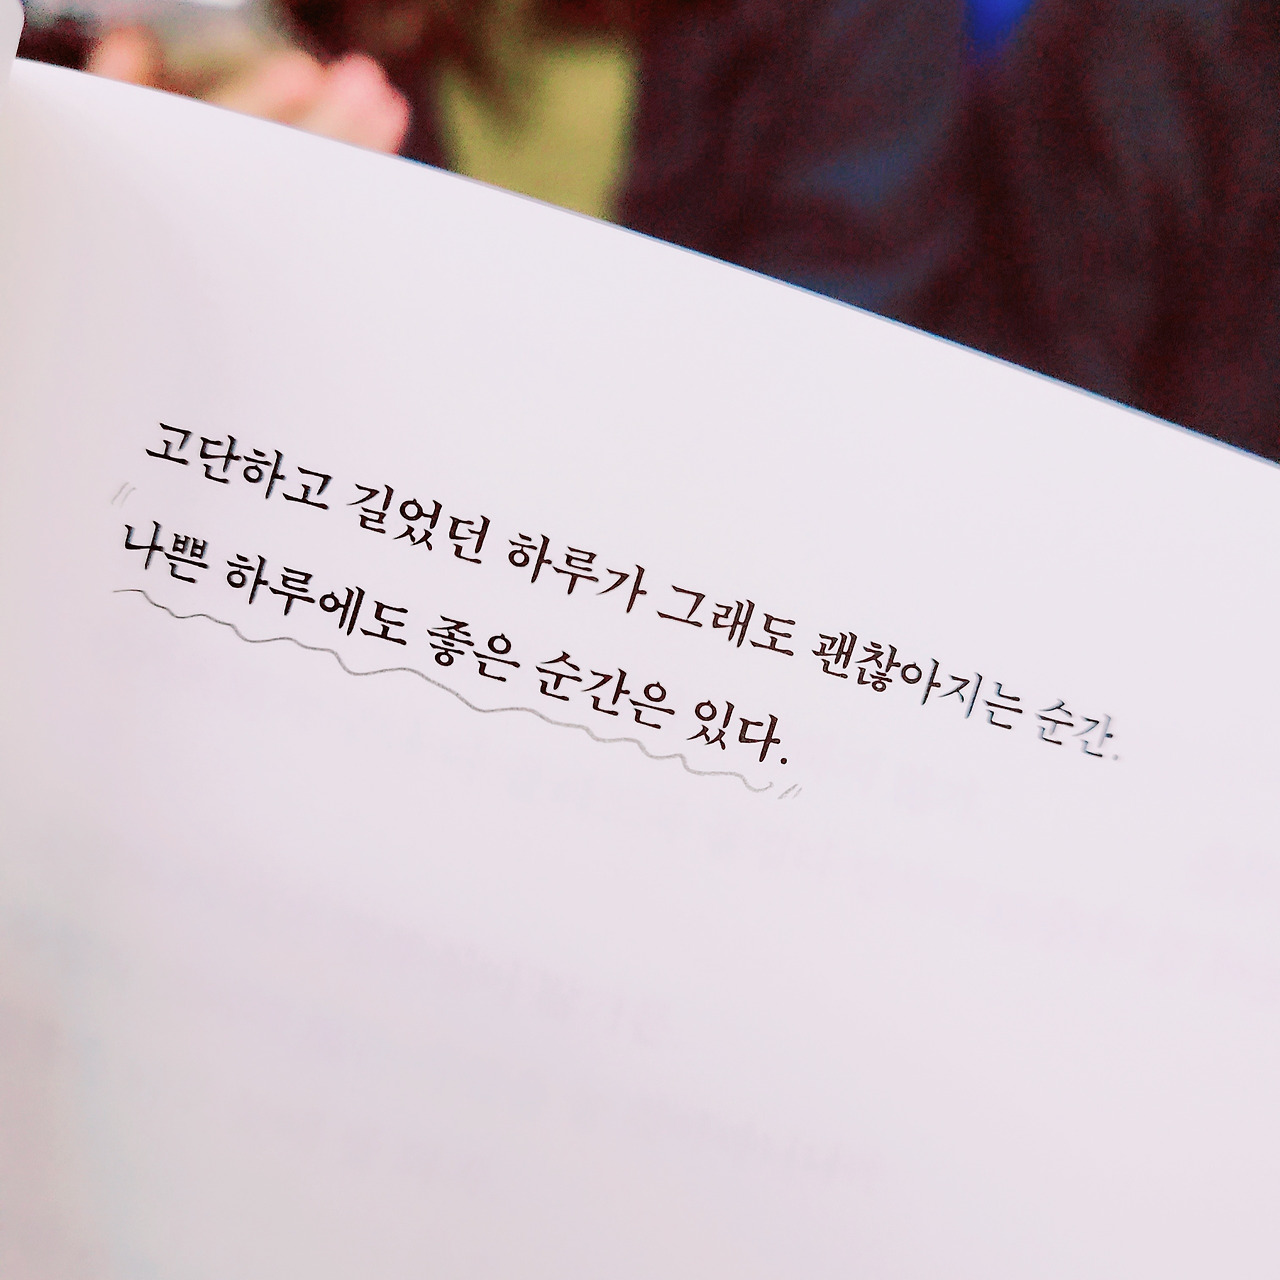 고단하고 길었던 하루가 그래도 괜찮아지는 순간.
"나쁜 하루에도 좋은 순간은 있다."